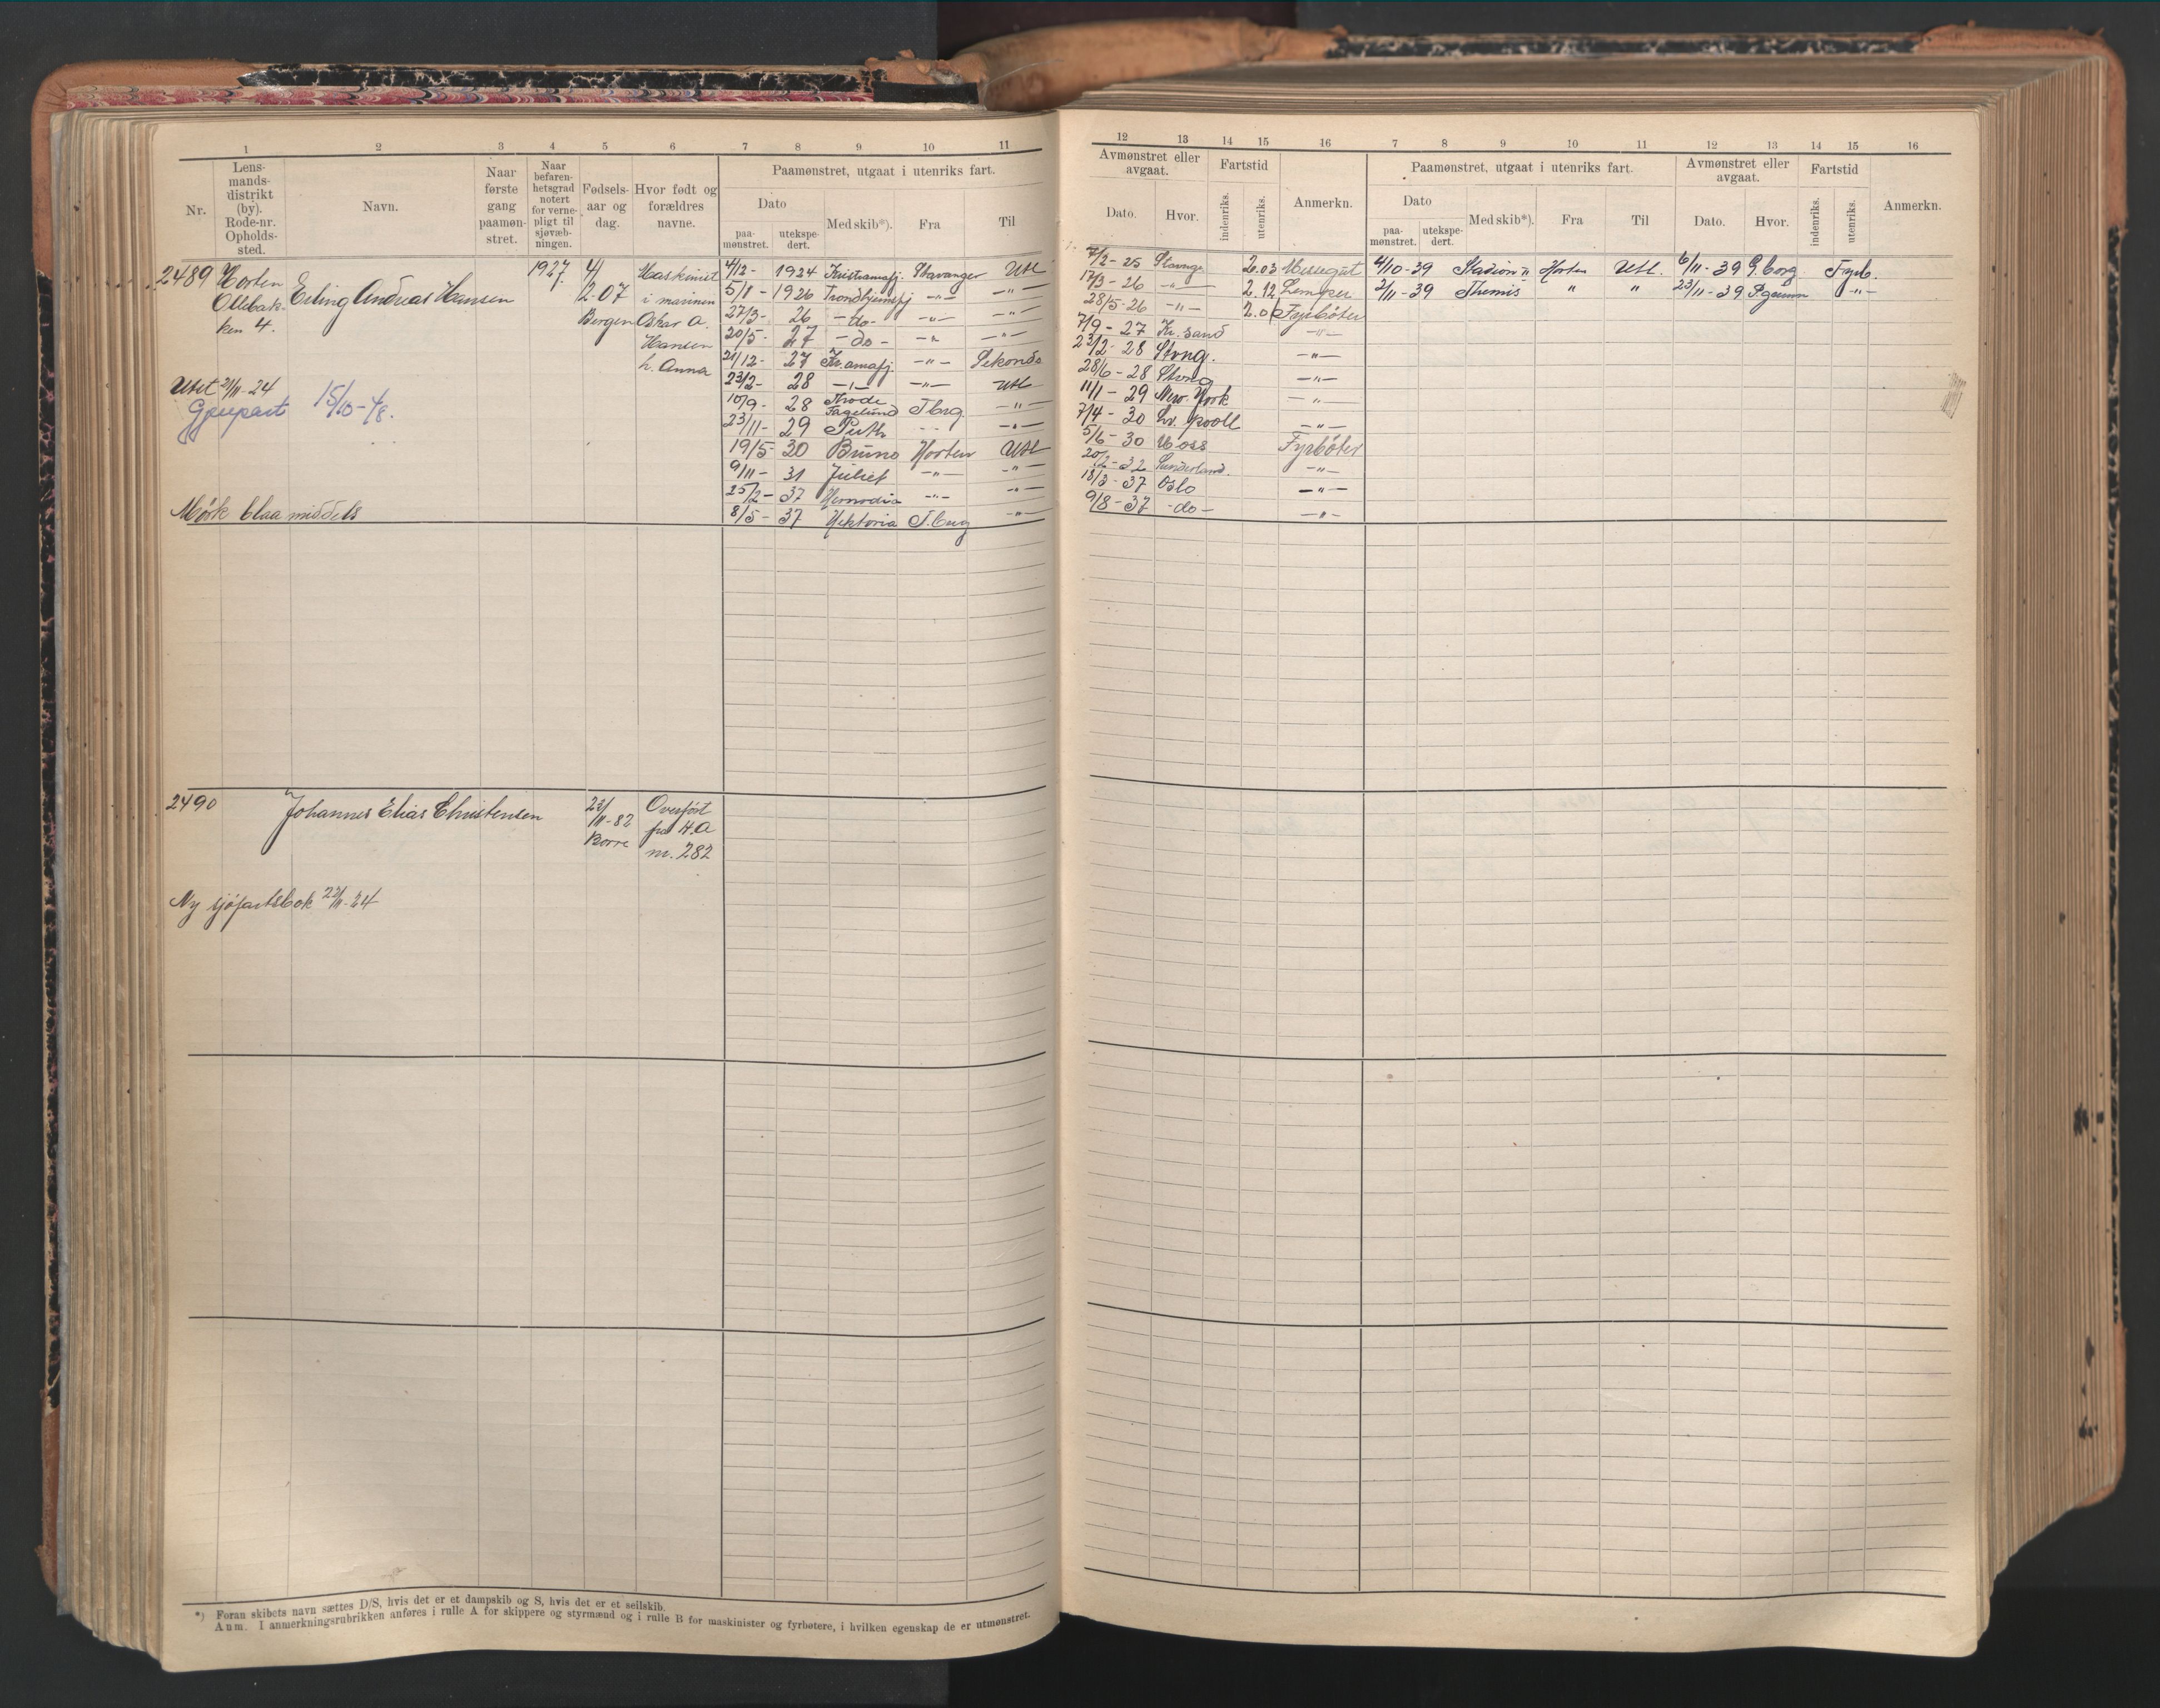 1 2 3 4 5 6 7 8 9 10 11
Nr.
Lens-
mands-
distrikt
(by).
Rode-nr.
Opholds-
sted.
Navn.
Naar
første
gang
paamøn-
stret.
Naar
befaren-
hetsgrad
notert
for verne-
pligt til
sjøvæb-
ningen.
Fødsels-
aar og
dag.
Hvor født og
forældres
navne.
Paamønstret, utgaat i utenriks fart.
Dato
paa-
mønstret.
utekspe-
dert.
Med skib*).
Fra
Til
12 13 14 15 16 7 8 9 10 11 12 13 14 15 16
Avmønstret eller
avgaat.
Dato.
Hvor.
Fartstid
indenriks.
utenriks.
Anmerkn.
Paamønstret, utgaat i utenriks fart.
Dato
paa-
mønstret.
utekspe-
dert.
Med skib*).
Fra
Til
Avmønstret eller
avgaat.
Dato.
Hvor.
Fartstid
indenriks.
utenriks.
Anmerkn.
2489 Horten
Ollebak-
ken 4.
Erling Andreas Hansen
1927.
4/
2-07
Bergen
Maskinist
i marinen
Oskar A.
Hansen
h. Anna
Utst 21/11-24
15/10-48.
Mørk blaa middels
4/12- 1924 Kristianiafj. Stavanger Utl
5/8- 1926 Trondhjemsfj -"- -"-
27/3- 26 -do- -"- -"-
20/5- 27 -do- -"- -"-
21/12- 27 Kr.aniafj. -"-
23/2- 28 -"- -"- Utl
10/9- 28 Thode Fagelund T.brg. -"-
23/11- 29 -"-
19/5- 30 Bruno Horten Utl
9/11- 31 Juliet -"- -"-
25/2- 37 -"- -"-
8/5- 37 Hektoria T.berg -"-
7/2-25 2.03 Messegut
17/3-26 -"- 2.12 Lemper
28/5-26 -"- Fyrbøter
7/9-27 Kr.sand -"-
23/2-28 Stvng. -"-
28/6-28 Stvng -"-
11/1-29 New-York -"-
7/4-30 Lv.pooll -"-
5/6-30 Moss Fyrbøter
20/2-32 Sunderland. -"-
18/3-37 Oslo -"-
9/8-37 -do- -"-
4/10-39 Stadion II Horten Utl. 6/11-39 G.borg Fyrb.
2/11-39 Themis " " 23/11-39 P.grunn -"-
2490
Johannes Elias Christensen
23/
11-82
Borre
Overført
fra H.A
nr. 282
Ny sjøfartsbok 22/11-24
*) Foran skibets navn sættes D/S, hvis det er et dampskib og S, hvis det er et seilskib.
Anm. I anmerkningsrubrikken anføres i rulle A for skippere og styrmænd og i rulle B for maskinister og fyrbøtere, i hvilken egenskap de er utmønstret.